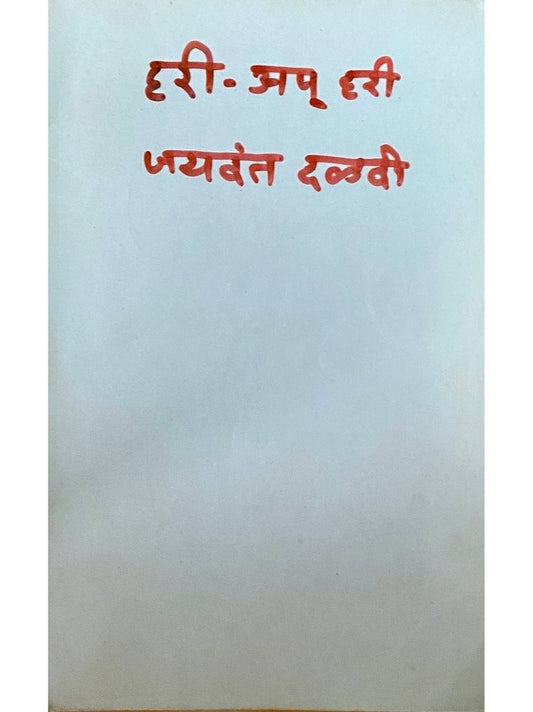 हरी. अप् हरी
जयवंत दळवी